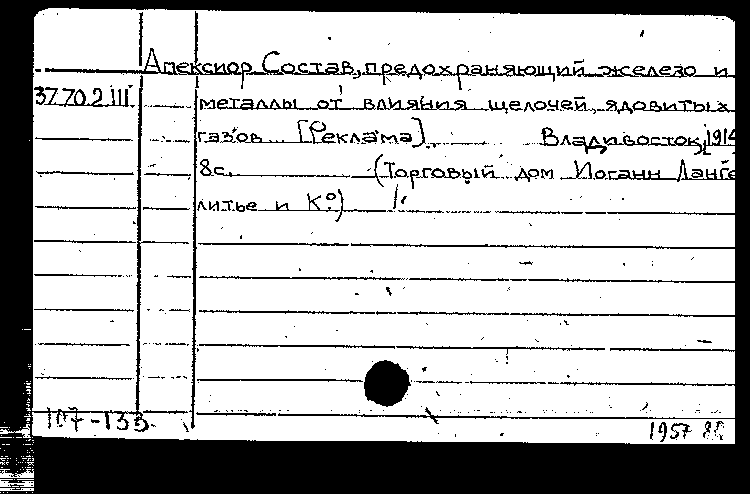 Апексиор Состав, предохраняющий железо и
37.70.2.III металлы от влияния щелочей, ядовитых
газов... [Реклама]. Владивосток, 1914
8с. (Торговый дом Иоганн Ланге
литье и К°)
107-133
1957